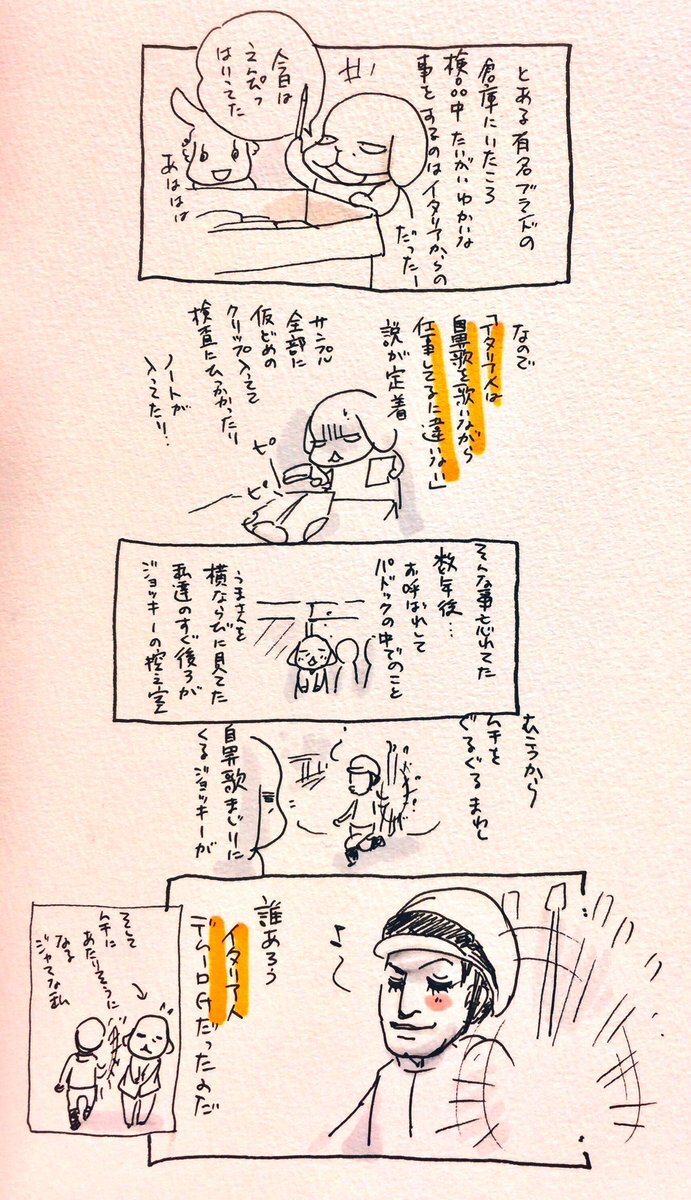 とある有名ブランドの
倉庫にいたころ
検品中たいがいゆかいな
事をするのはイタリアからの
だったー
今日は
えんぴつ
はいってた
あははは
なので
「イタリア人は
鼻歌を歌いながら
仕事してるに違いない」
説が定着
サンプル
全部に
仮どめの
クリップ入ってて
検査にひっかかったり
ノートが
入ってたり…
ピ
ピ
そんな事も忘れてた
数年後…
お呼ばれして
パドックの中でのこと
うまさんを
横ならびに見てた
私達のすぐ後ろが
ジョッキーの控え室
むこうから
ムチを
ぐるぐるまわし
鼻歌まじりに
くるジョッキーが
誰あろう
イタリア人
デムーロGだったのだ
そして
ムチに
あたりそうに
なる
ジャマな私